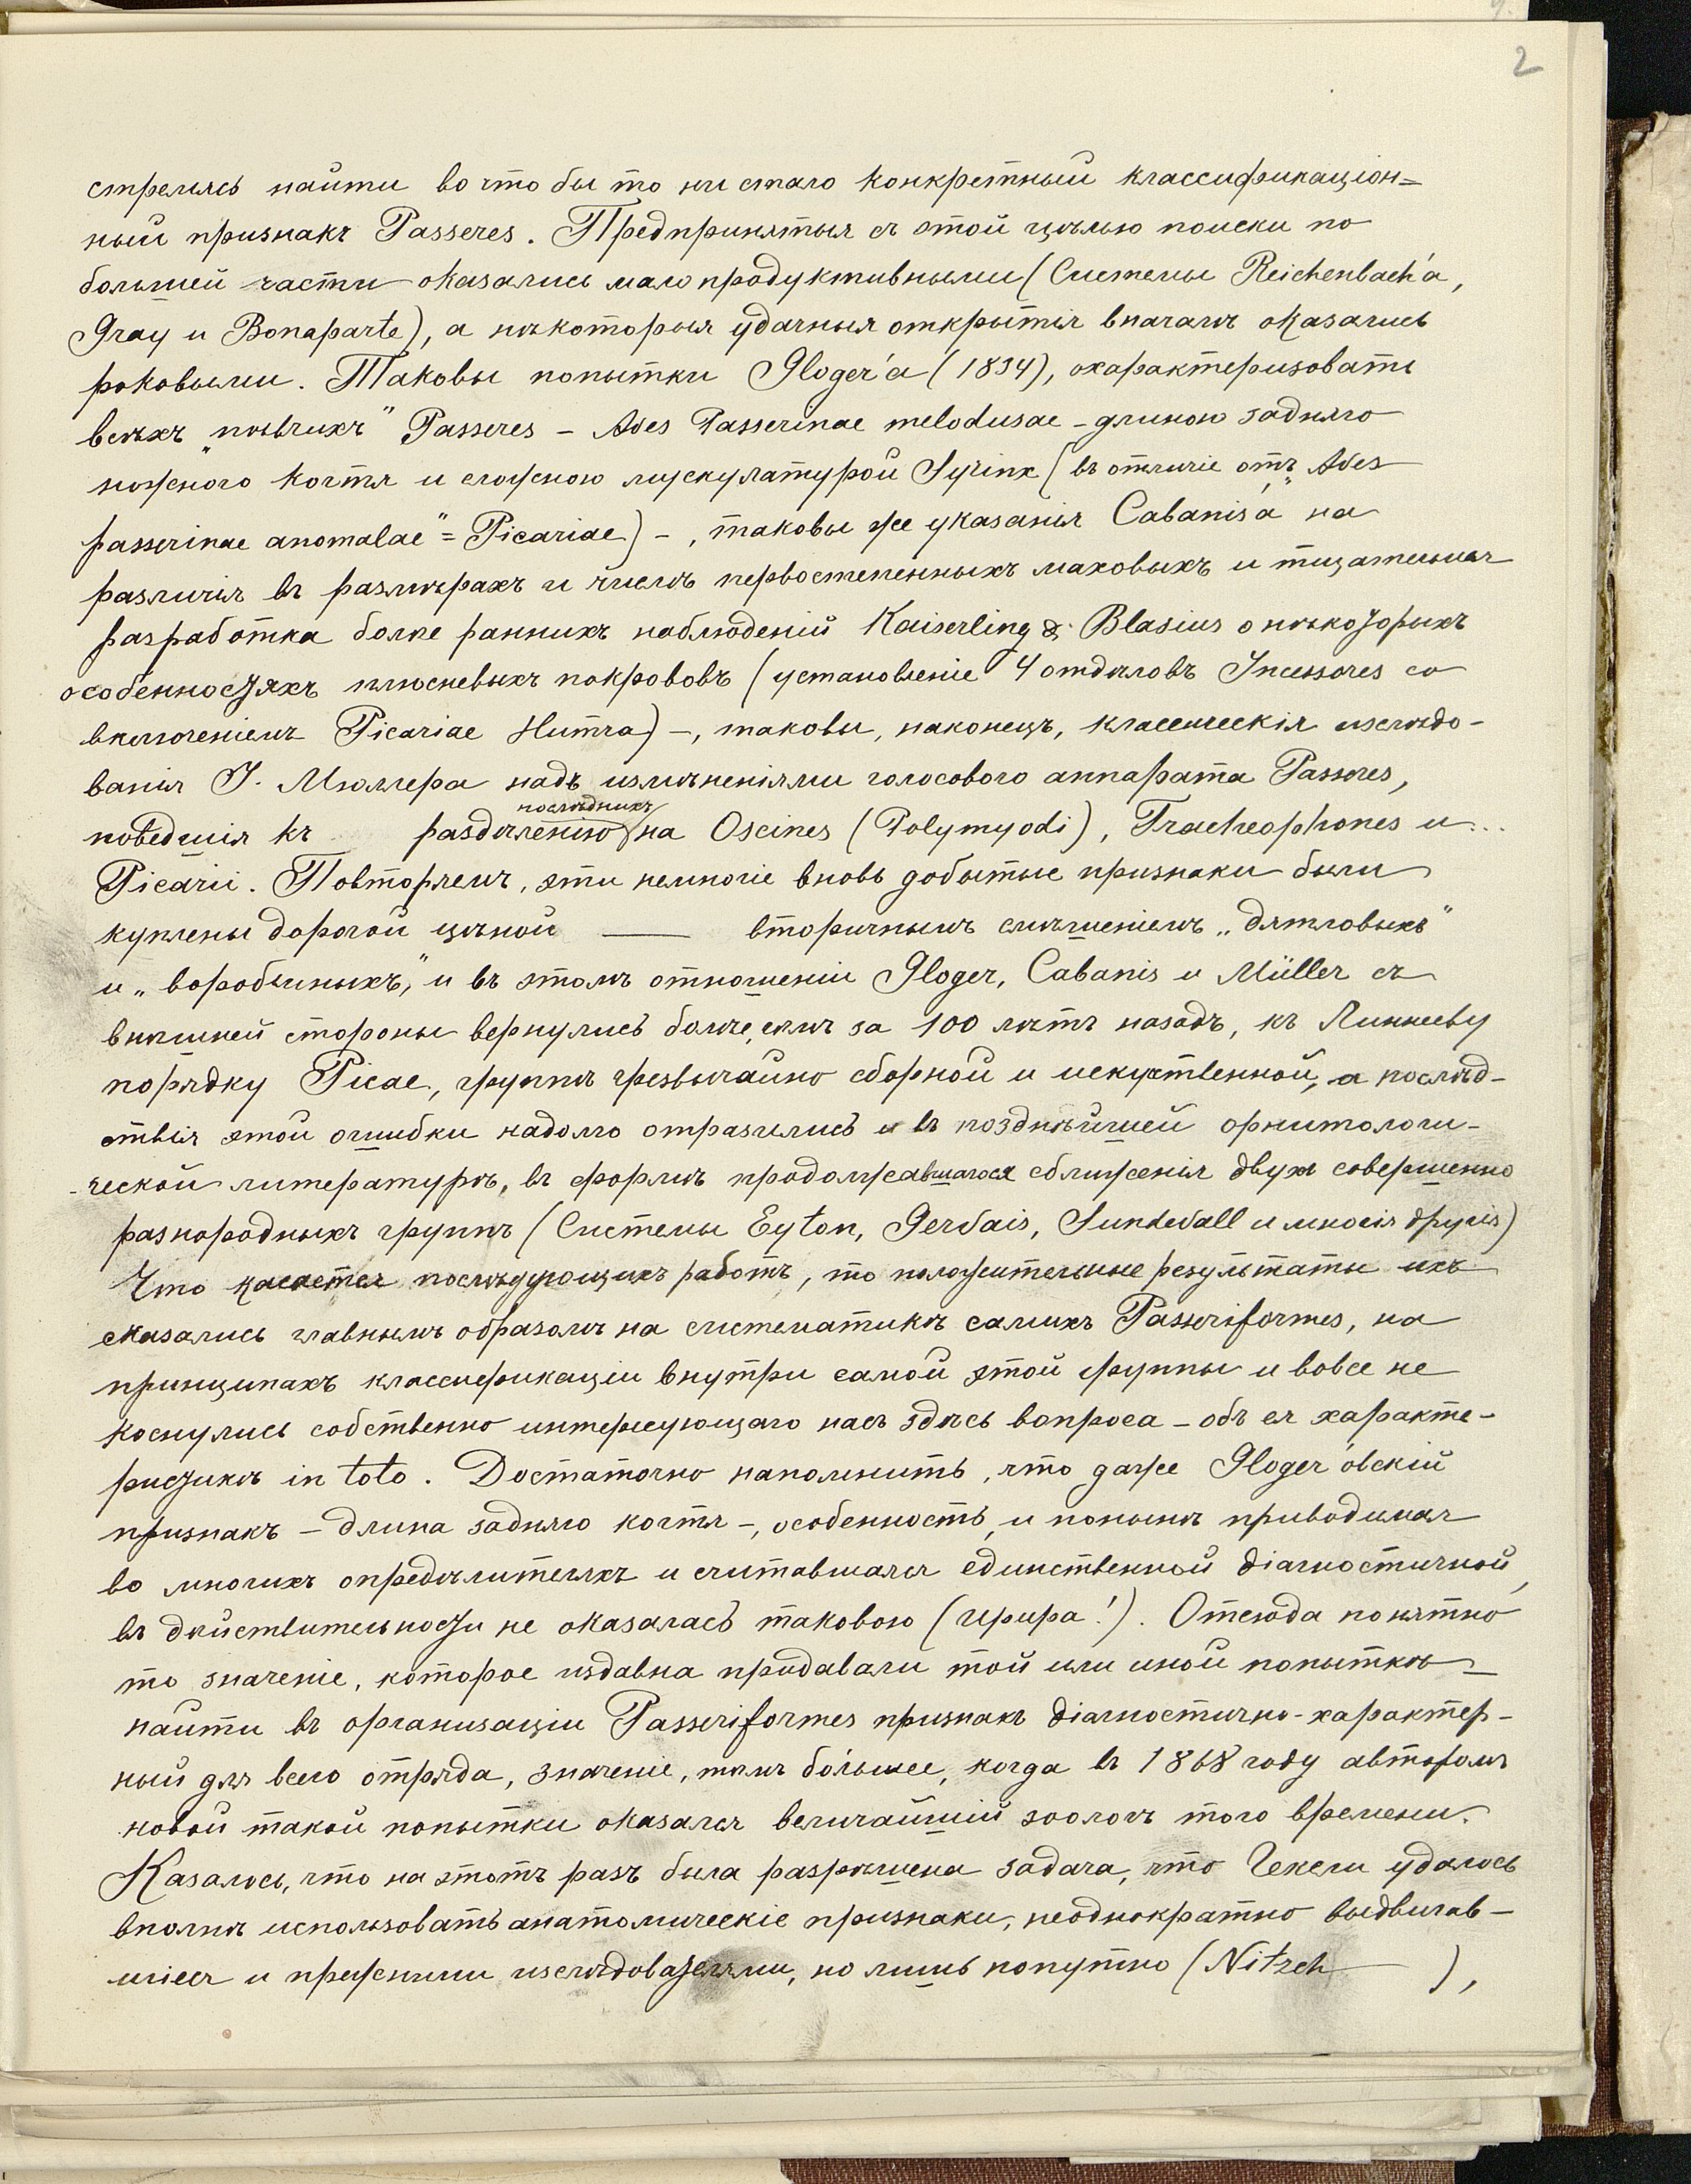 2
стремясь найти во что бы то ни стало конкретный классификаціон=
ный признакъ Passeres. Предпринятыя съ этой цѣлью поиски по
большей части оказались мало продуктивными (Системы Reichenbach'а,
Gray и Bonaparte), а нѣкоторыя удачныя открытія вначалѣ оказались
роковыми. Таковы попытки Gloger'а (1834), охарактеризовать
всѣхъ „пѣвчихъ" Passeres – Aves Passerinae melodusae – длиною задняго
ножного когтя и сложною мускулатурой Syrinx (въ отличіе отъ „Aves
passerinae anomalae" = Picariae) –, таковы же указанія Cabanis'а на
различія въ размѣрахъ и числѣ первостепенныхъ маховыхъ и тщательная
разработка болѣе раннихъ наблюденій Kaiserling & Blasius о нѣкоторыхъ
особенностяхъ плюсневыхъ покрововъ (установленіе 4 отдѣловъ Incessores со
включеніемъ Picariae Нитча) –, таковы, наконецъ, классическія изслѣдо-
ванія І. Мюллера надъ измѣненіями голосового аппарата Passeres,
поведшія къ раздѣленію послѣднихъ на Oscines (Polymyodi), Tracheophones и...
Picarii. Повторяемъ, эти немногіе вновь добытые признаки были
куплены дорогой цѣной — вторичнымъ смѣшеніемъ „дятловыхъ"
и „воробьиныхъ," и въ этомъ отношеніи Gloger, Cabanis и Müller съ
внѣшней стороны вернулись болѣе, чѣмъ за 100 лѣтъ назадъ, къ Линнееву
порядку Picae, группѣ чрезвычайно сборной и искуственной, а послѣд-
ствія этой ошибки надолго отразились и въ позднѣйшей орнитологи-
ческой литературѣ, въ формѣ продолжавшагося сближенія двухъ совершенно
разнородныхъ группъ (Системы Eyton, Gervais, Sundevall и многія другія)
Что касается послѣдующихъ работъ, то положительные результаты ихъ
сказались главнымъ образомъ на систематикѣ самихъ Passeriformes, на
принципахъ классификаціи внутри самой этой группы и вовсе не
коснулись собственно интересующаго насъ здѣсь вопроса – объ ея характе-
ристикѣ in toto. Достаточно напомнить, что даже Gloger'овскій
признакъ – длина задняго когтя –, особенность, и понынѣ приводимая
во многихъ опредѣлителяхъ и считавшаяся единственной діагностичной,
въ дѣйствительности не оказалась таковою (Upupa!). Отсюда понятно
то значеніе, которое издавна придавали той или иной попыткѣ
найти въ организаціи Passeriformes признакъ діагностично-характер-
ный для всего отряда, значеніе, тѣмъ бóльшее, когда въ 1868 году авторомъ
новой такой попытки оказался величайшій зоологъ того времени.
Казалось, что на этотъ разъ была разрѣшена задача, что Гексли удалось
вполнѣ использовать анатомическіе признаки, неоднократно выдвигав-
шіеся и прежними изслѣдователями, но лишь попутно (Nitzch ),